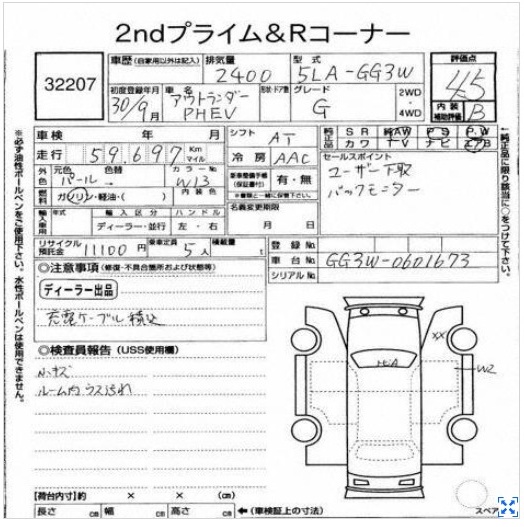 2ndプライム&Rコーナー
32207
車歴 (自家用以外は記入) 排気量 2400 型式 5LA-GG3W
評価点 4.5
初度登録年月 30/9月 車名 アウトランダー PHEV 形状・ドア数 グレード G 2WD・4WD
内装補助評価 B
車検 年 月 シフト AT
純正品 SR AW PS PW
カワ TV ナビ エアB
走行 59,697 Km マイル 冷房 AAC
セールスポイント
ユーザー下取
バックモニター
外色 元色 パール 色替 カラーNo. W13
燃料 ガソリン・軽油・( ) 内装色
有・無
名義変更期限 月 日
輸入車用 年式 輸入区分 ディーラー・並行 ハンドル 左・右
リサイクル預託金 11100円 乗車定員 5人 積載量 t
登録No.
車台No. GG3W-0601673
シリアルNo.
◎注意事項 (修復・不具合箇所および状態等)
ディーラー出品
充電ケーブル積込
◎検査員報告 (USS使用欄)
小キズ
ルーム内ウス汚れ
XX
W2
【荷台内寸】約 × × (cm)
長さ cm 幅 cm 高さ cm ←(車検証上の寸法)
スペア
※必ず油性ボールペンをご使用下さい。水性ボールペンは使用できません。
←純正品に限り該当に○をつけて下さい。